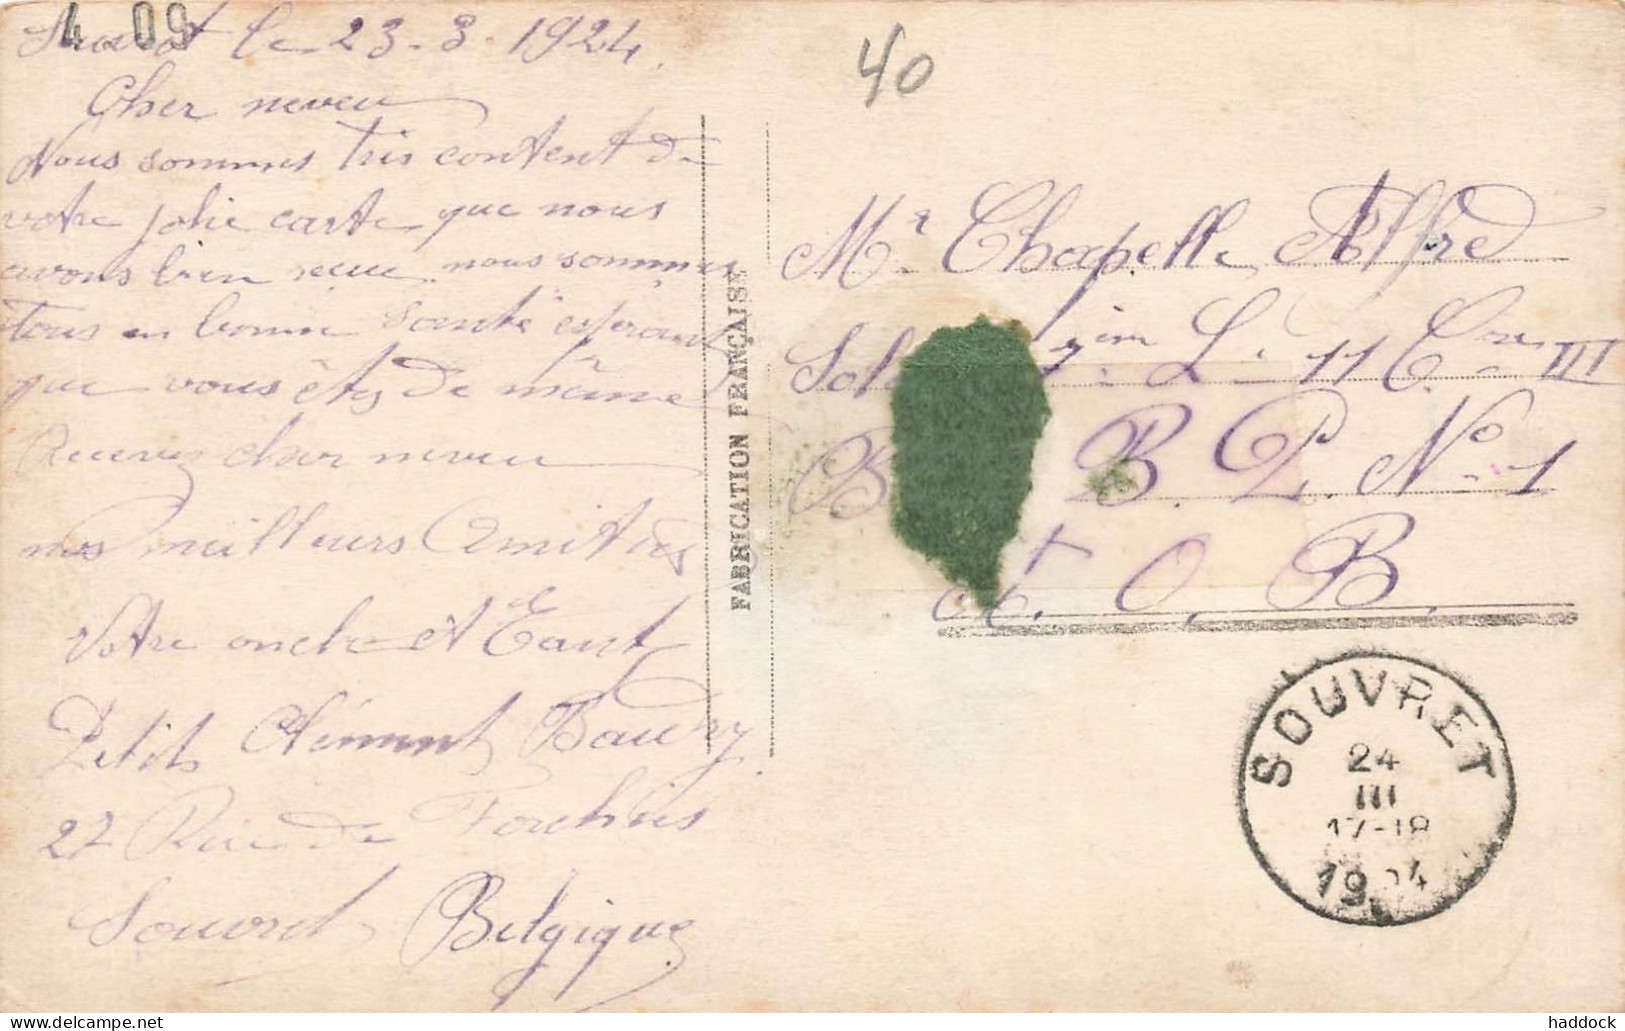 4 09
le 23-3-1924.
Cher neveu
Nous sommes tris content de
votre jolie carte que nous
avons bien recue nous sommes
tous en bonne santé esperant
que vous êtes de même
Recevez cher neveu
nos meilleurs Amitiés
Votre oncle et Tant
Petit Clément Baudry
27 Rue de Forchies
Souvret Belgique
FABRICATION FRANÇAISE
40
Mr Chapelle Alfred
7im L. 11 Cie III
B. P. No 1
A. O. B.
SOUVRET
24
III
17-18